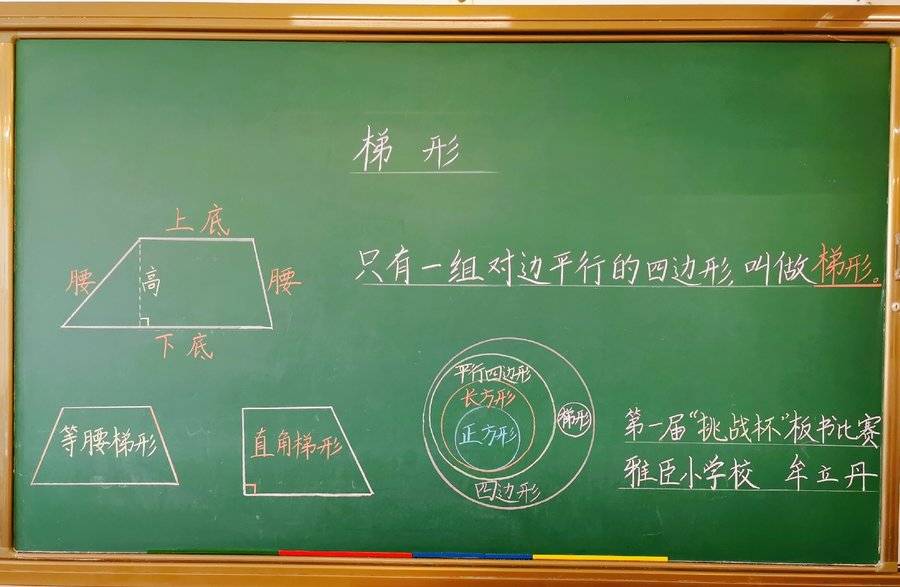 梯 形
上底
腰
高
腰
下底
只有一组对边平行的四边形,叫做梯形。
等腰梯形
直角梯形
平行四边形
长方形
正方形
梯形
四边形
第一届“挑战杯”板书比赛
雅臣小学校 牟立丹